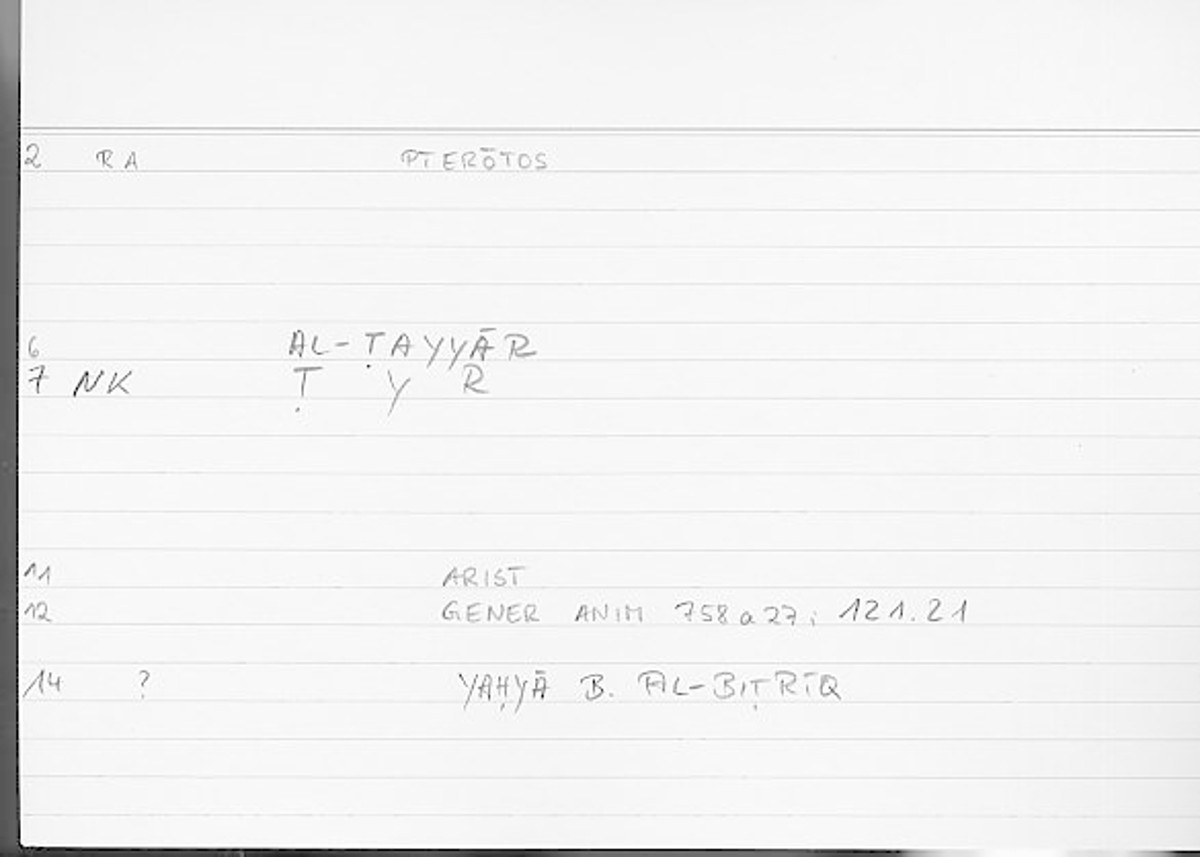 2 RA PTERŌTOS
6 AL-ṬAYYĀR
7 NK Ṭ Y R
11 ARIST
12 GENER ANIM 758 a 27; 121.21
14 ? YAḤYĀ B. AL-BIṬRĪQ